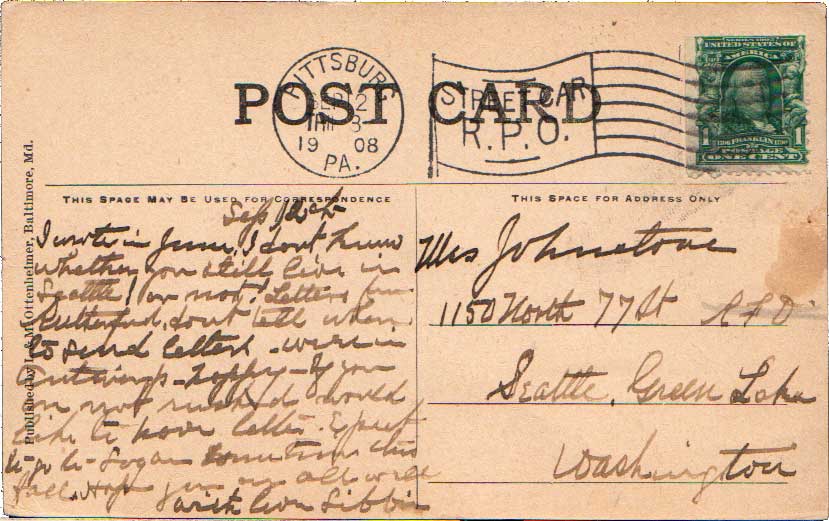 POST CARD
PITTSBURG
SEP 12
1908
PA.
STREET CAR
R.P.O.
SERIES 1902
UNITED STATES OF
AMERICA
1 FRANKLIN 1
POSTAGE
ONE CENT
THIS SPACE MAY BE USED FOR CORRESPONDENCE
THIS SPACE FOR ADDRESS ONLY
Published by I. & M. Ottenheimer, Baltimore, Md.
Sep 12th
I wrote in June, I dont know
whether you still live in
Seattle! or not! Letters from
Rutherford, dont tell where
to send letters. were in
If you
are not rushed would
like to have letter. Expect
to go to Logan sometime this
fall. Hope you are all well
with love Libbie
Mrs Johnstone
1150 North 77 St R F D
Seattle, Green Lake
Washington